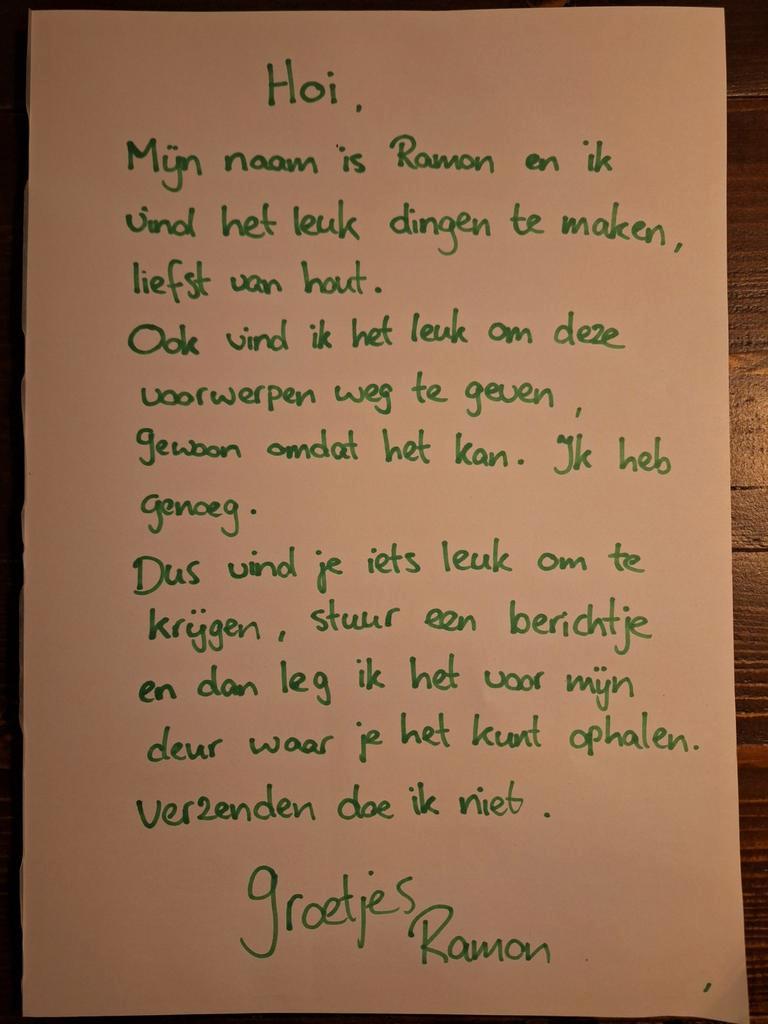 Hoi,
Mijn naam is Ramon en ik
vind het leuk dingen te maken,
liefst van hout.
Ook vind ik het leuk om deze
voorwerpen weg te geven,
gewoon omdat het kan. Ik heb
genoeg.
Dus vind je iets leuk om te
krijgen, stuur een berichtje
en dan leg ik het voor mijn
deur waar je het kunt ophalen.
Verzenden doe ik niet.
Groetjes
Ramon